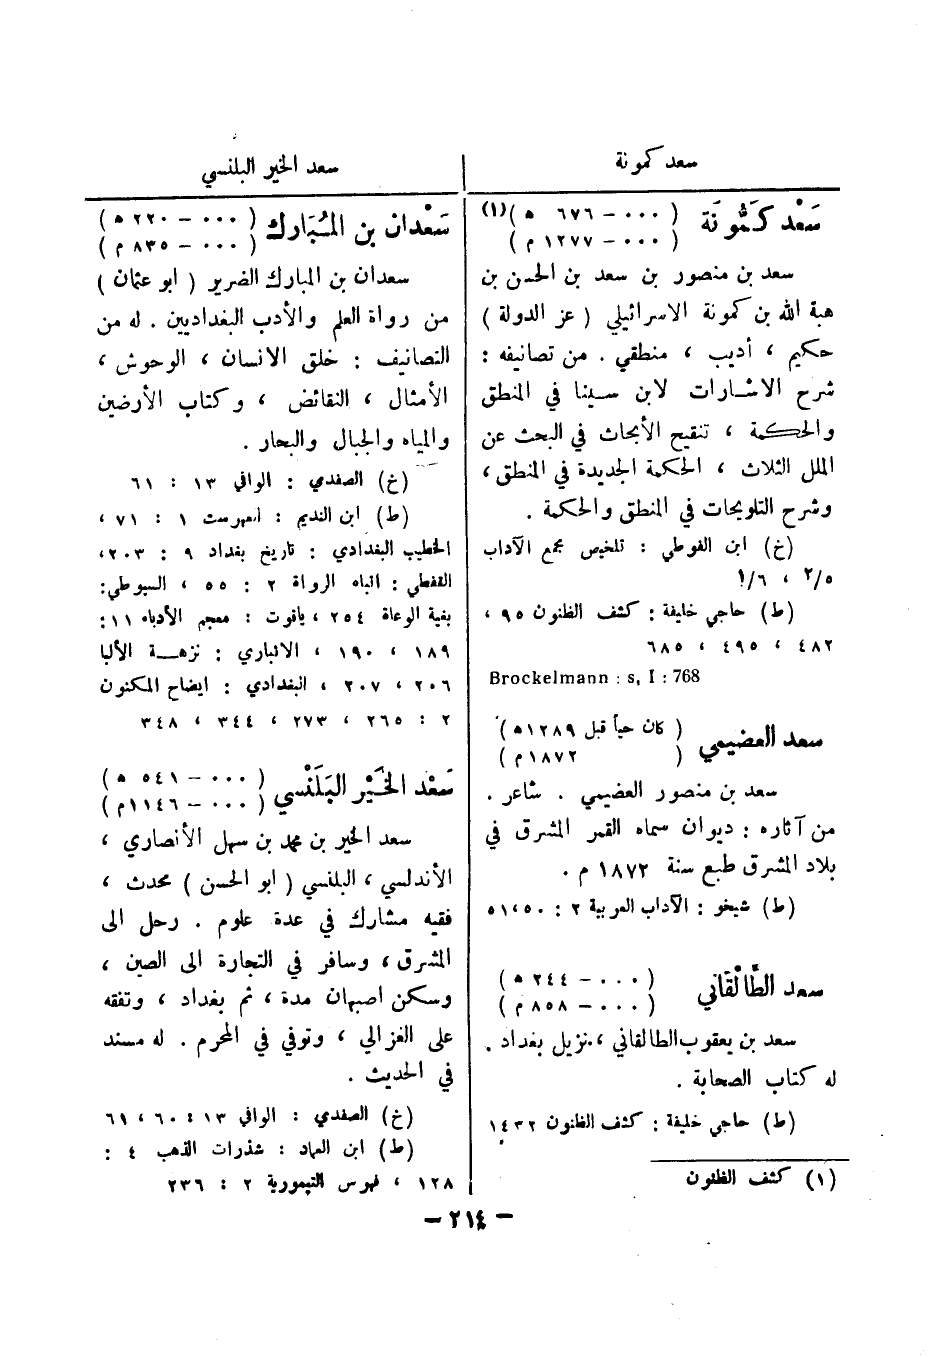 سعد كمونة
سَعْد كَمُّونَة (٠٠٠ – ٦٧٦ هـ)(١)
(٠٠٠ – ١٢٧٧ م)
سعد بن منصور بن سعد بن الحسن بن
هبة الله بن كمونة الاسرائيلي ( عز الدولة )
حكيم ، أديب ، منطقي . من تصانيفه :
شرح الاشارات لابن سينا في المنطق
والحكمة ، تنقيح الأبحاث في البحث عن
الملل الثلاث ، الحكمة الجديدة في المنطق ،
وشرح التلويحات في المنطق والحكمة .
(خ) ابن الفوطي : تلخيص مجمع الآداب
٢/٥ ، ١/٦
(ط) حاجي خليفة : كشف الظنون ٩٥ ،
٤٨٢ ، ٤٩٥ ، ٦٨٥
Brockelmann : s, I : 768
سعد العضيمي ( كان حياً قبل ١٢٨٩ هـ )
( ١٨٧٢ م )
سعد بن منصور العضيمي . شاعر .
من آثاره : ديوان سماه القمر المشرق في
بلاد المشرق طبع سنة ١٨٧٢ م .
(ط) شيخو : الآداب العربية ٢ : ٥٠ ، ٥١
سعد الطَّالْقَاني (٠٠٠ – ٢٤٤ هـ)
(٠٠٠ – ٨٥٨ م)
سعد بن يعقوب الطالقاني ، نزيل بغداد .
له كتاب الصحابة .
(ط) حاجي خليفة : كشف الظنون ١٤٣٢
(١) كشف الظنون
سعد الخير البلنسي
سَعْدان بن المُبَارك (٠٠٠ – ٢٢٠ هـ)
(٠٠٠ – ٨٣٥ م)
سعدان بن المبارك الضرير ( ابو عثمان )
من رواة العلم والأدب البغداديين . له من
التصانيف : خلق الانسان ، الوحوش ،
الأمثال ، النقائض ، وكتاب الأرضين
والمياه والجبال والبحار .
(خ) الصفدي : الوافي ١٣ : ٦١
(ط) ابن النديم : الفهرست ١ : ٧١ ،
الخطيب البغدادي : تاريخ بغداد ٩ : ٢٠٣ ،
القفطي : انباه الرواة ٢ : ٥٥ ، السيوطي :
بغية الوعاة ٢٥٤ ، ياقوت : معجم الأدباء ١١ :
١٨٩ ، ١٩٠ ، الانباري : نزهة الألبا
٢٠٦ ، ٢٠٧ ، البغدادي : ايضاح المكنون
٢ : ٢٦٥ ، ٢٧٣ ، ٣٤٤ ، ٣٤٨
سَعْد الخَيْر البَلَنْسي (٠٠٠ – ٥٤١ هـ)
(٠٠٠ – ١١٤٦ م)
سعد الخير بن محمد بن سهل الأنصاري ،
الأندلسي ، البلنسي ( ابو الحسن ) محدث ،
فقيه مشارك في عدة علوم . رحل الى
المشرق ، وسافر في التجارة الى الصين ،
وسكن اصبهان مدة ، ثم بغداد ، وتفقه
على الغزالي ، وتوفي في المحرم . له مسند
في الحديث .
(خ) الصفدي : الوافي ١٣ : ٦٠ ، ٦١
(ط) ابن العماد : شذرات الذهب ٤ :
١٢٨ ، فهرس التيمورية ٢ : ٢٣٦
– ٢١٤ –